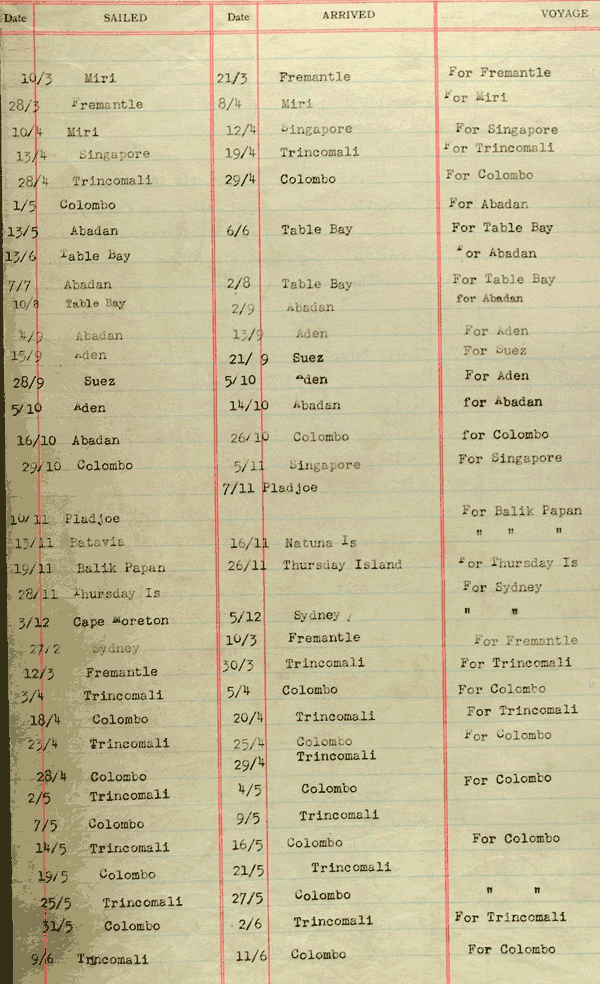 Date SAILED Date ARRIVED VOYAGE
10/3 Miri 21/3 Fremantle For Fremantle
28/3 Fremantle 8/4 Miri For Miri
10/4 Miri 12/4 Singapore For Singapore
13/4 Singapore 19/4 Trincomali For Trincomali
28/4 Trincomali 29/4 Colombo For Colombo
1/5 Colombo For Abadan
13/5 Abadan 6/6 Table Bay For Table Bay
13/6 Table Bay For Abadan
7/7 Abadan 2/8 Table Bay For Table Bay
10/8 Table Bay 2/9 Abadan for Abadan
4/9 Abadan 13/9 Aden For Aden
15/9 Aden 21/ 9 Suez For Suez
28/9 Suez 5/10 Aden For Aden
5/10 Aden 14/10 Abadan for Abadan
16/10 Abadan 26/10 Colombo for Colombo
29/10 Colombo 5/11 Singapore For Singapore
7/11 Pladjoe
10/11 Pladjoe For Balik Papan
13/11 Batavia 16/11 Natuna Is " " "
19/11 Balik Papan 26/11 Thursday Island For Thursday Is
28/11 Thursday Is For Sydney
3/12 Cape Moreton 5/12 Sydney " "
27/2 Sydney 10/3 Fremantle For Fremantle
12/3 Fremantle 30/3 Trincomali For Trincomali
3/4 Trincomali 5/4 Colombo For Colombo
18/4 Colombo 20/4 Trincomali For Trincomali
23/4 Trincomali 25/4 Colombo For Colombo
29/4 Trincomali
28/4 Colombo 4/5 Colombo For Colombo
2/5 Trincomali
7/5 Colombo 9/5 Trincomali
14/5 Trincomali 16/5 Colombo For Colombo
19/5 Colombo 21/5 Trincomali
25/5 Trincomali 27/5 Colombo " "
31/5 Colombo 2/6 Trincomali For Trincomali
9/6 Trincomali 11/6 Colombo For Colombo